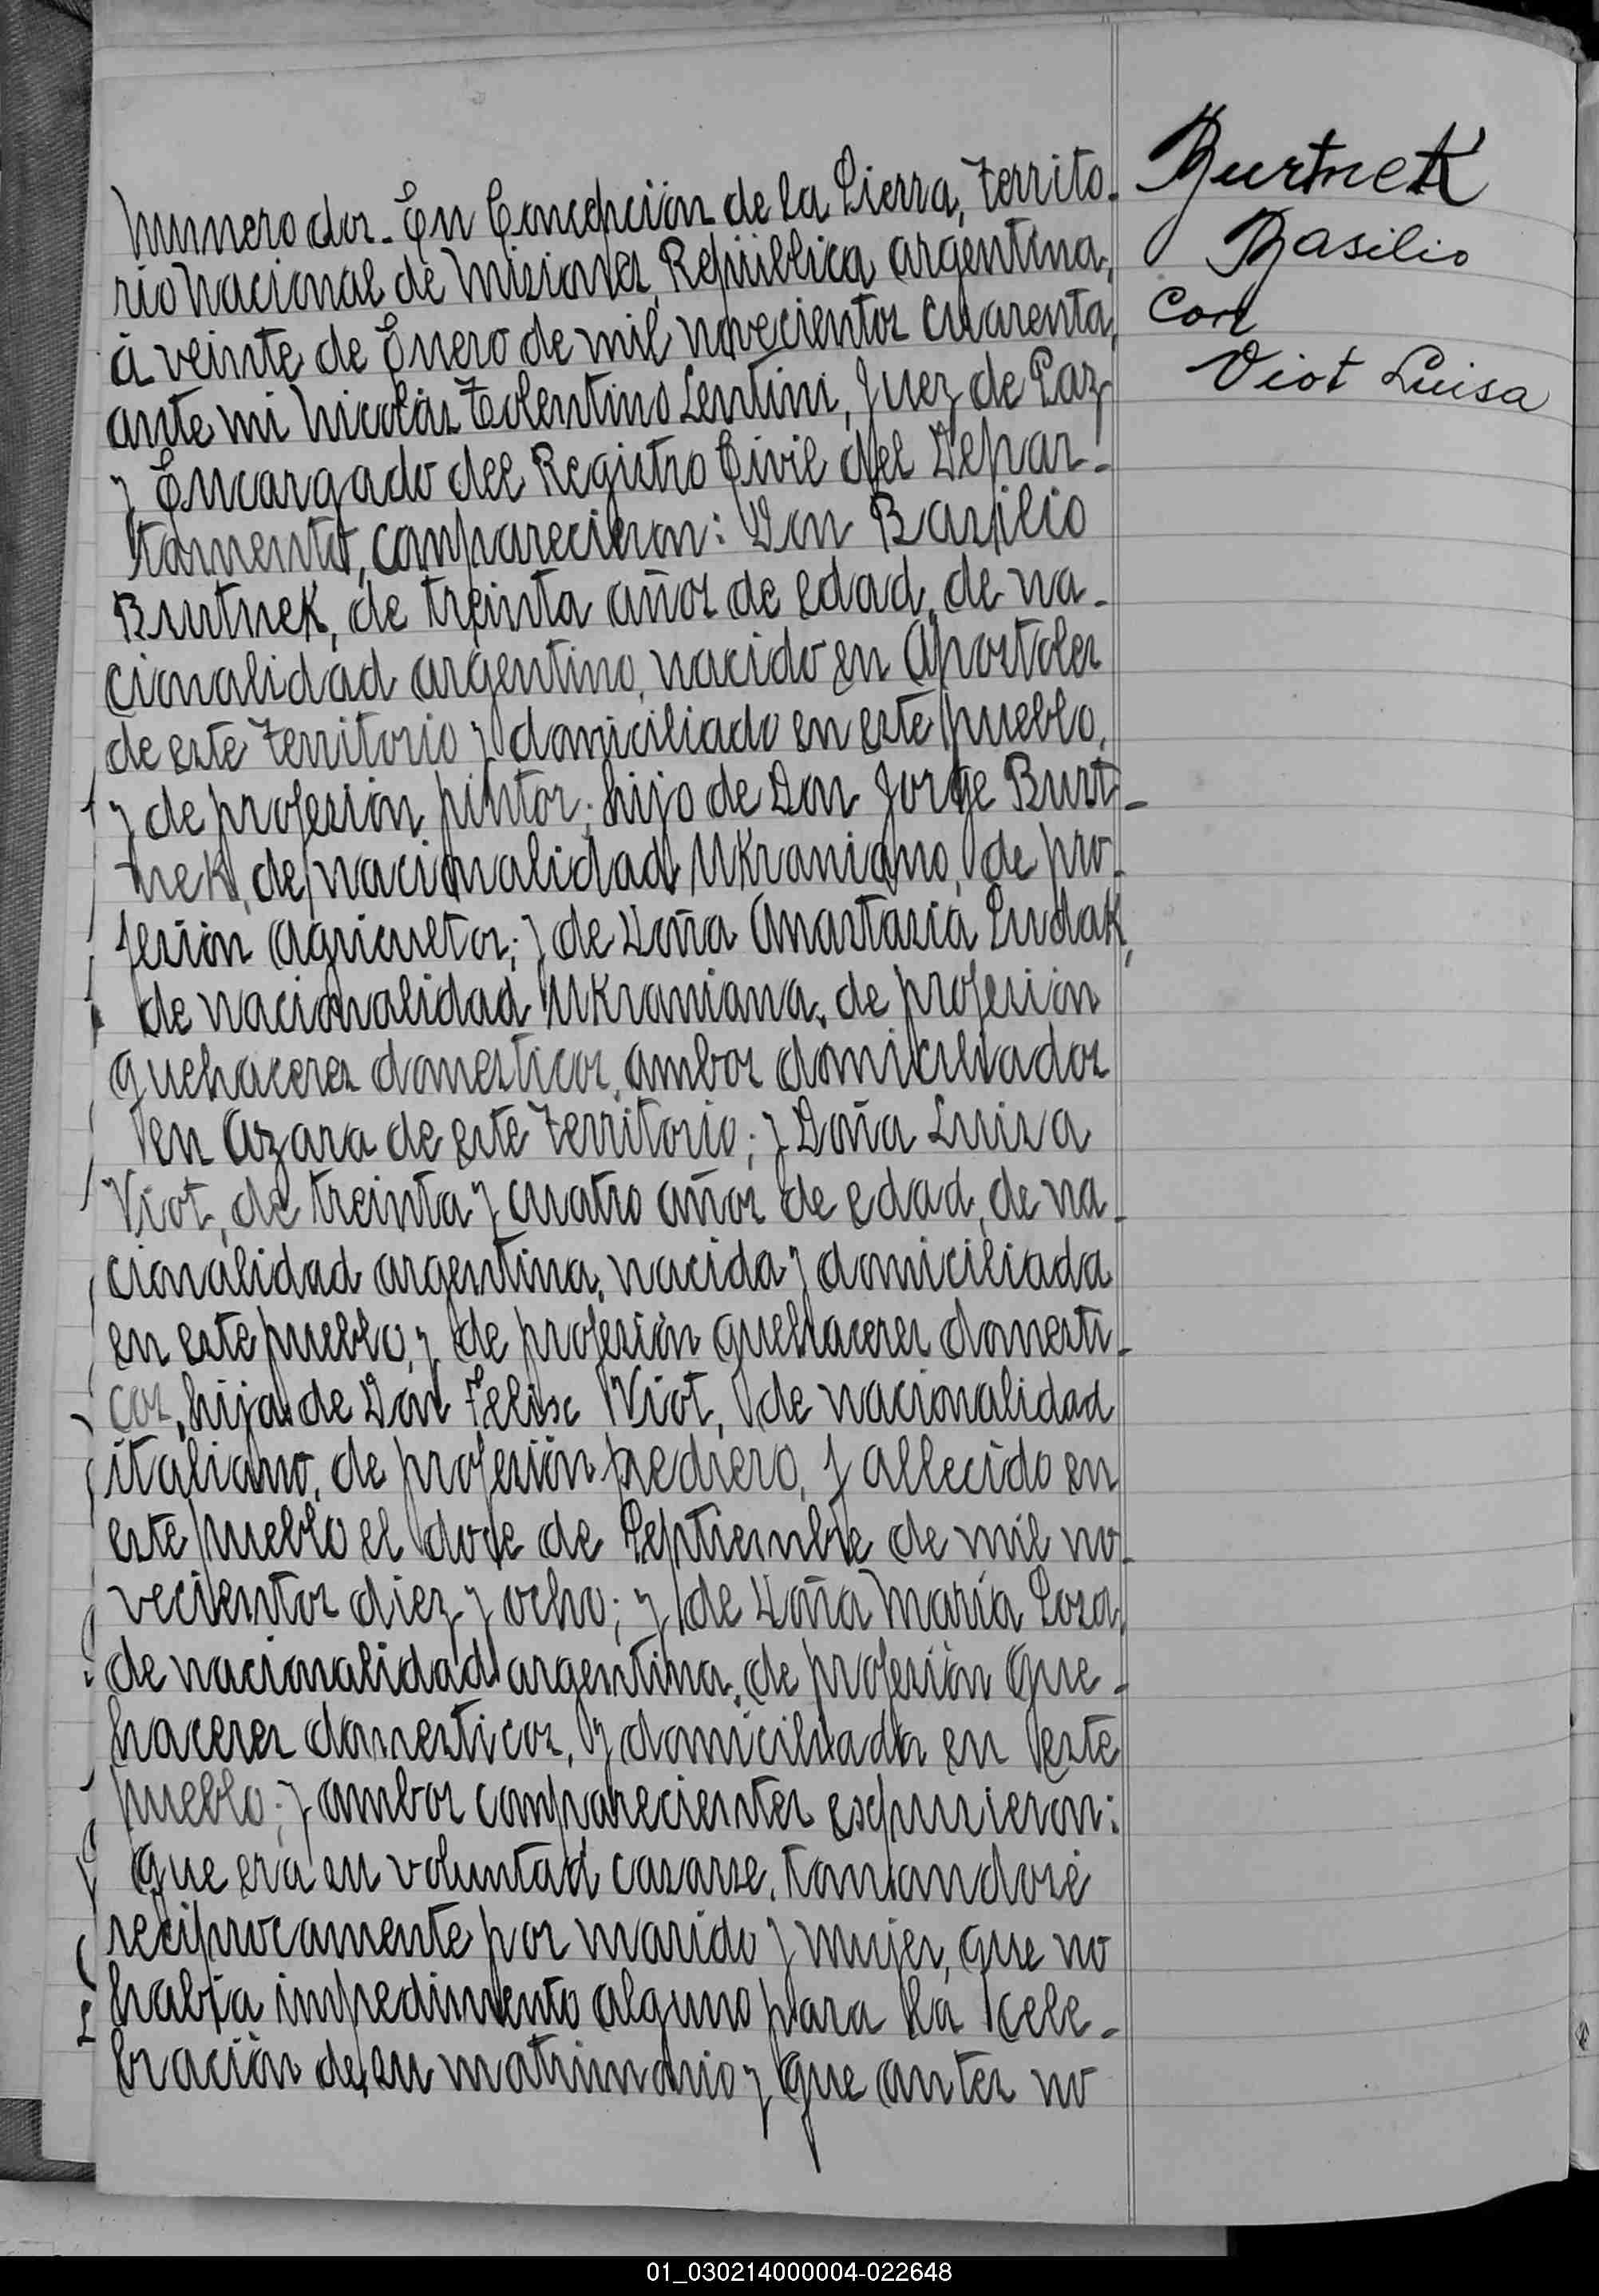 Número dos. En Concepción de la Sierra, Territo-
rio Nacional de Misiones, República Argentina,
á veinte de Enero de mil novecientos cuarenta,
ante mi Nicolás Tolentino Lentini, Juez de Paz
y Encargado del Registro Civil del Depar-
tamento, comparecieron: Don Basilio
Burtnek, de treinta años de edad, de na-
cionalidad argentino, nacido en Apostoles
de este Territorio y domiciliado en este pueblo,
y de profesión pintor; hijo de Don Jorge Burt-
nek, de nacionalidad Ukraniano, de pro-
fesión agricultor; y de Doña Anastasia
de nacionalidad Ukraniana, de profesión
quehaceres domesticos, ambos domiciliados
en Azara de este Territorio; y Doña Luisa
Viot, de treinta y cuatro años de edad, de na-
cionalidad argentina, nacida y domiciliada
en este pueblo, y de profesión quehaceres domesti-
cos, hija de Don Felix Viot, de nacionalidad
italiano, de profesión pedrero, fallecido en
este pueblo el doce de Septiembre de mil no-
vecientos diez y ocho; y de Doña María Sosa,
de nacionalidad argentina, de profesión que-
haceres domesticos, y domiciliada en este
pueblo; y ambos comparecientes expusieron:
Que era su voluntad casarse, tomandose
reciprocamente por marido y mujer, que no
había impedimento alguno para la cele-
bración de su matrimonio y que antes no
Burtnek
Basilio
Con
Viot Luisa
01_030214000004-022648